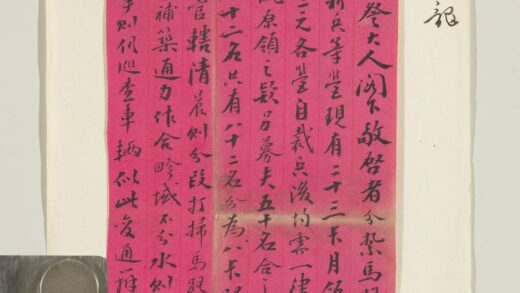 大人閣下敬啓者分紮馬路
新兵等營現有二十三卡月領
二元各營自裁兵後均需一律
原領之款另募夫五十名合
十二名共有八十二名分為八卡
管轄清晨則分段打掃馬路
補築通力作合畛域不分水則
則伺巡查車輛似此變通